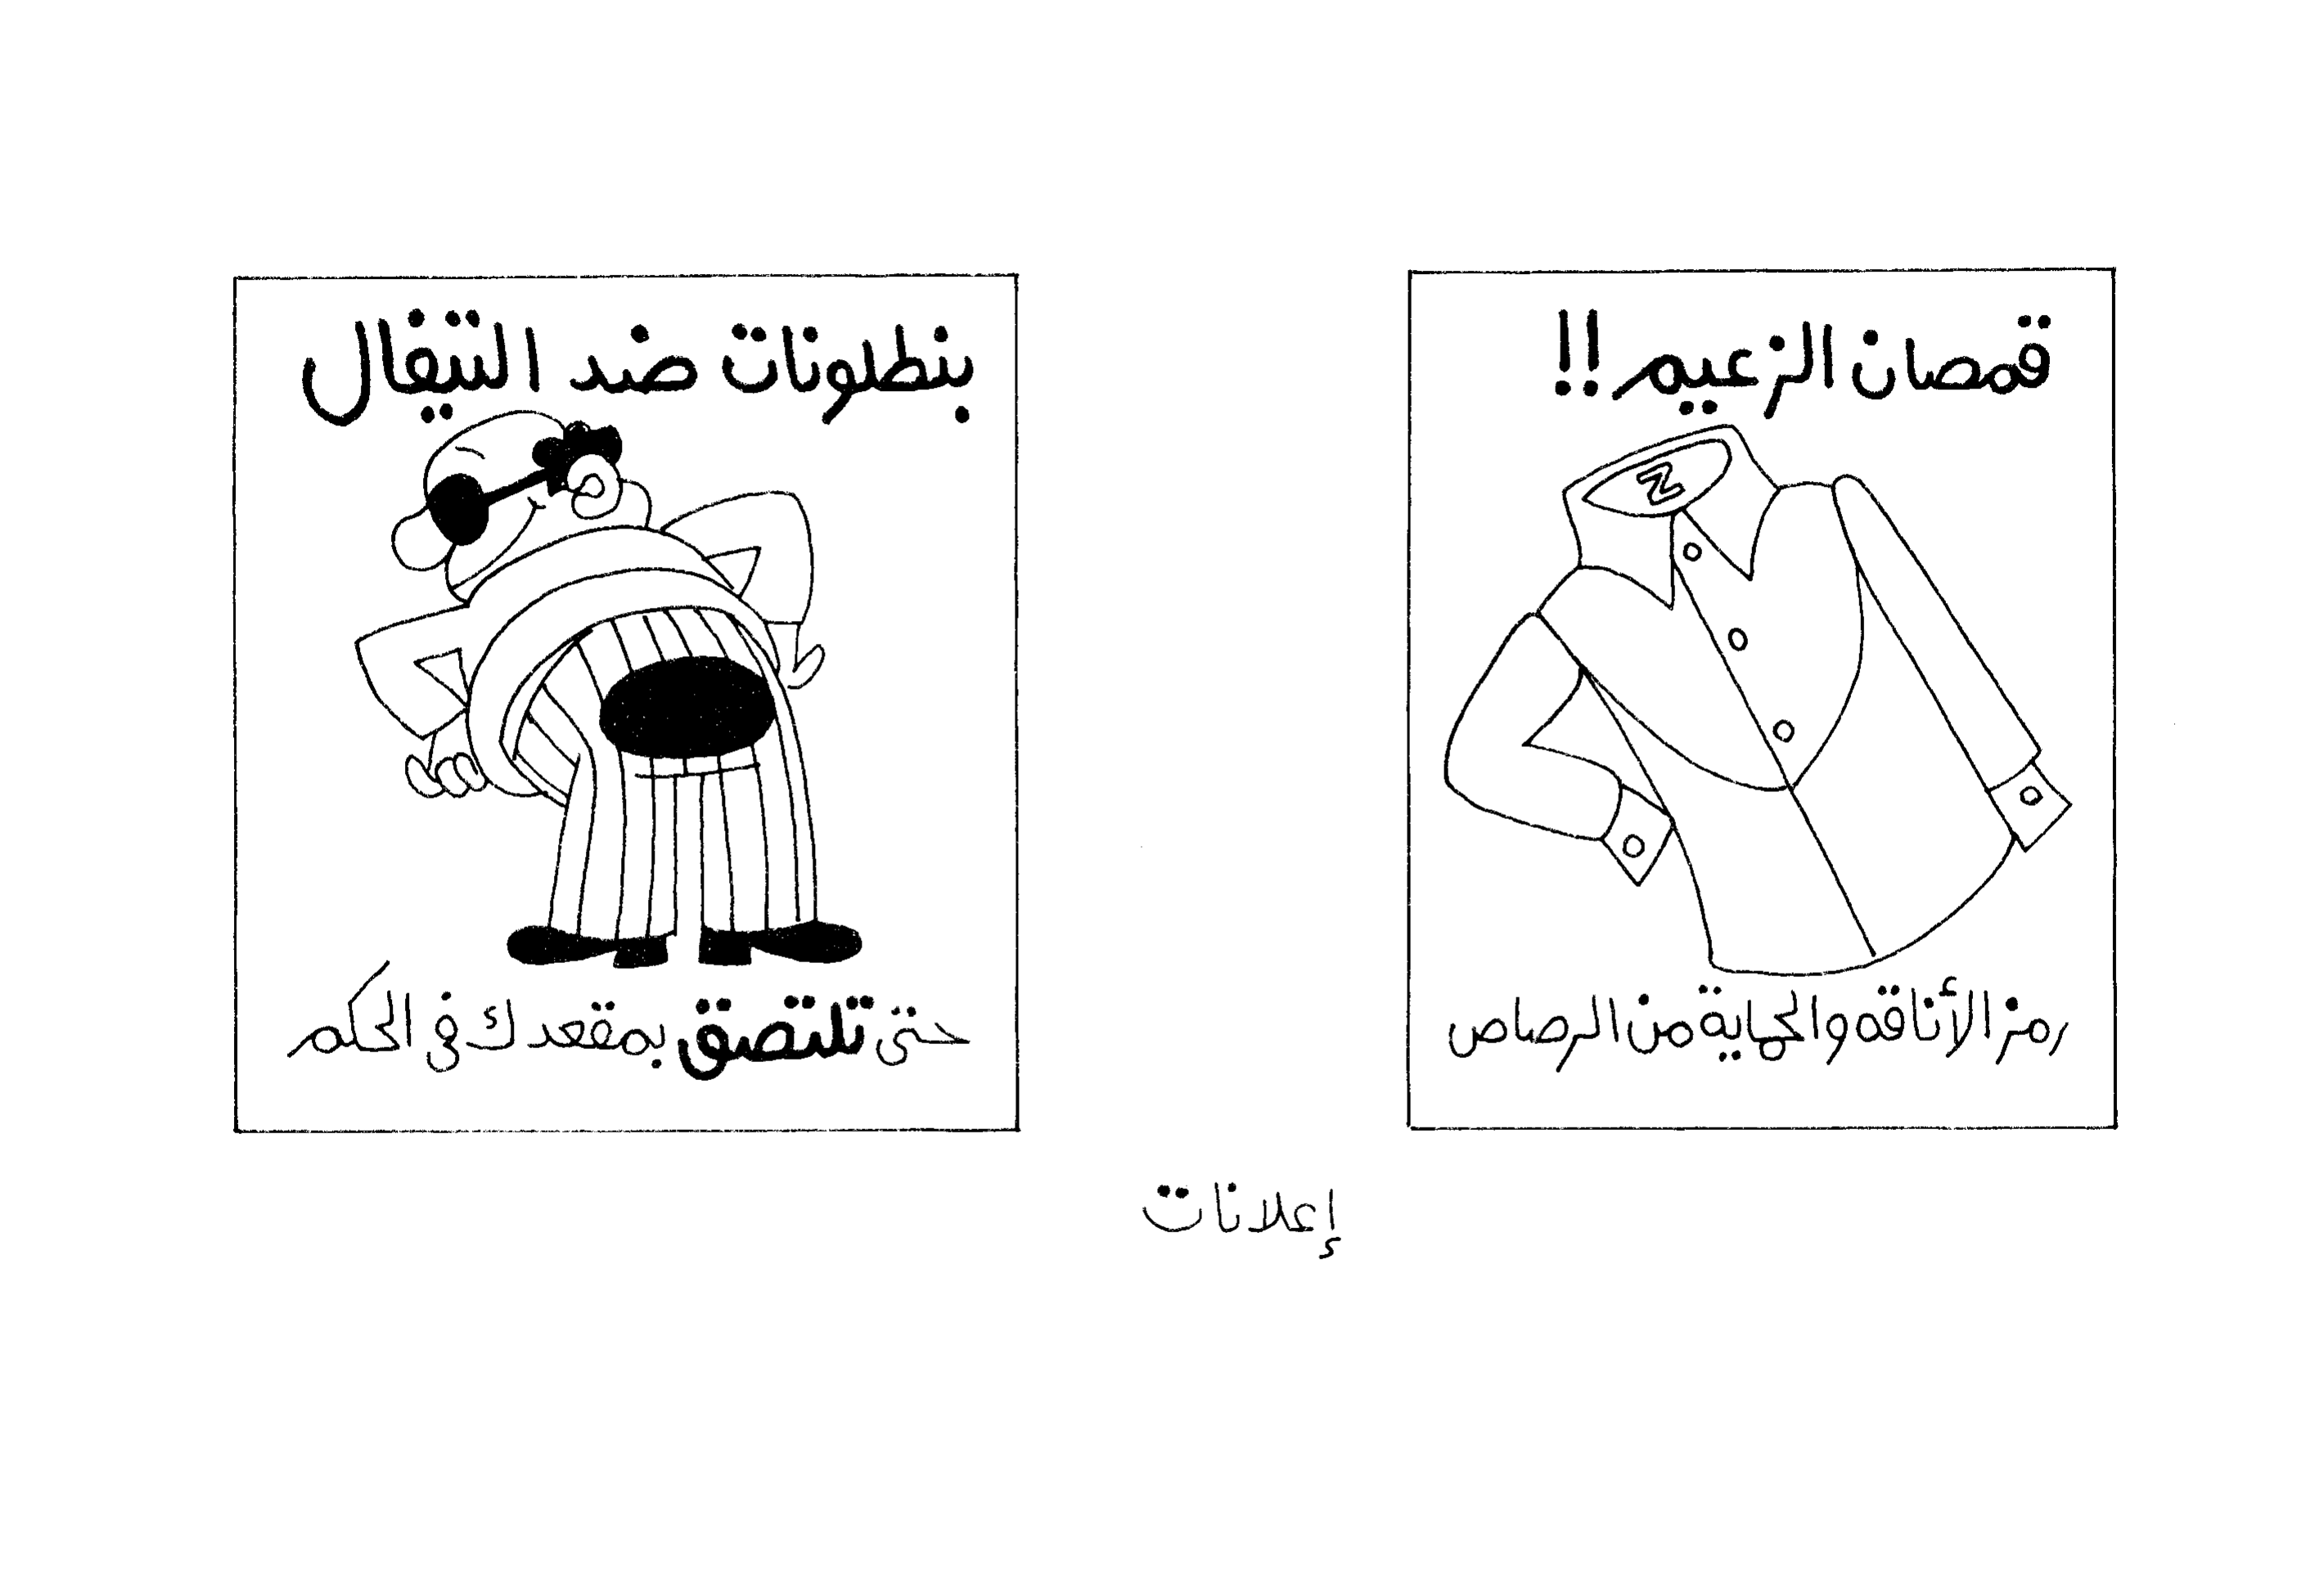 قمصان الزعيم !!
Z
رمز الأناقه والحماية من الرصاص
بنطلونات ضد التيفال
حتى تلتصق بمقعدك في الحكم
إعلانات